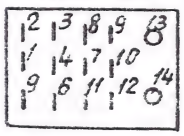 2 3 8 9 13
1 4 7 10
9 6 11 12 14